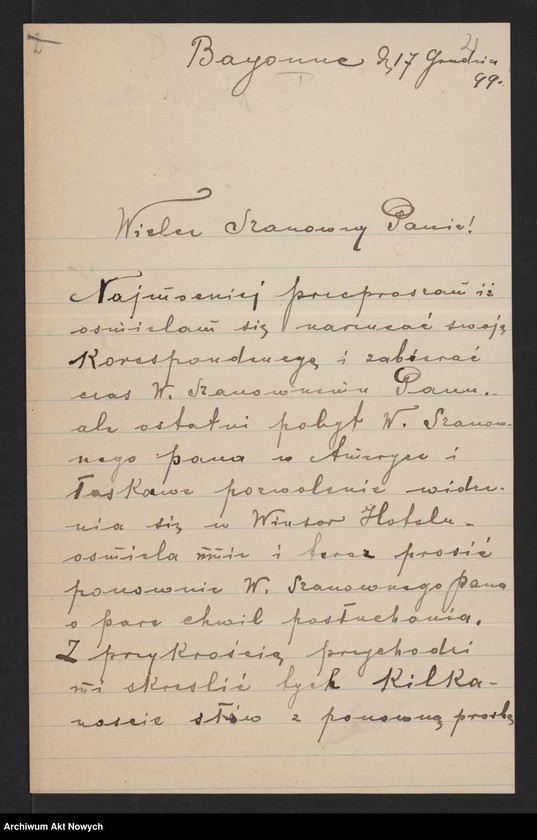 2
4
Bayonne d, 17 Grudnia
99.
Wielce Szanowny Panie!
Najmocniej przepraszam iż
ośmielam się narzucać swoją
Korespondencyę i zabierać
czas W. Szanownemu Panu.-
ale ostatni pobyt W. Szanow-
nego pana w Ameryce i
łaskawe pozwolenie widze-
nia się w Winsor Hotelu-
ośmiela mnie i teraz prosić
ponownie W. Szanownego pana
o parę chwil posłuchania.
Z przykrością przychodzi
mi skreślić tych Kilka-
naście słów z ponowną prośbą
Archiwum Akt Nowych